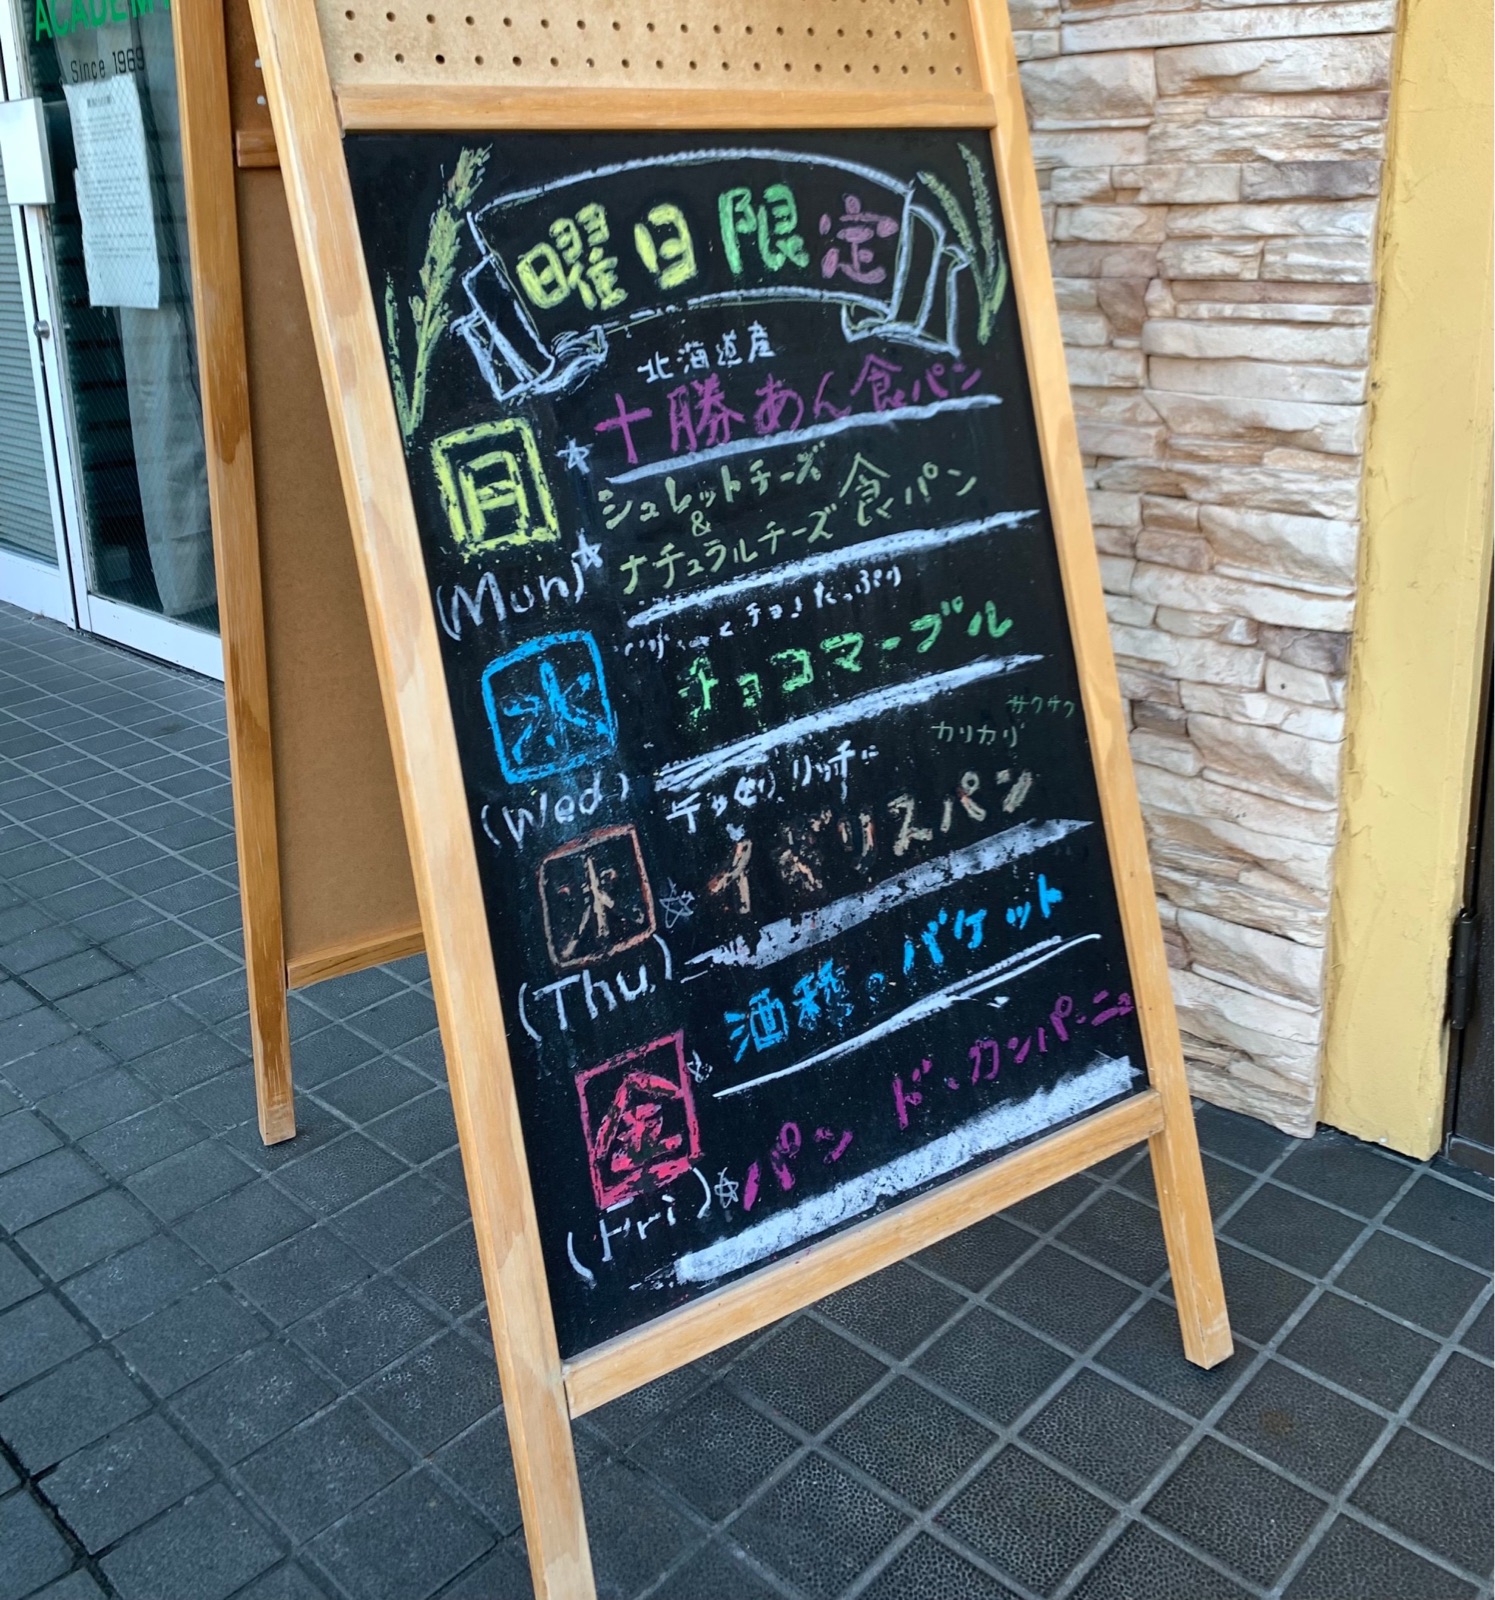 ACADEMY
Since 1969
曜日限定
北海道産
十勝あん食パン
月
シュレットチーズ
&
ナチュラルチーズ食パン
(Mon)
チョコたっぷり
チョコマーブル
水
サクサク
カリカリ
(Wed)
リッチに
イギリスパン
木
(Thu)
酒種のバケット
金
パン ド・カンパーニュ
(Fri)